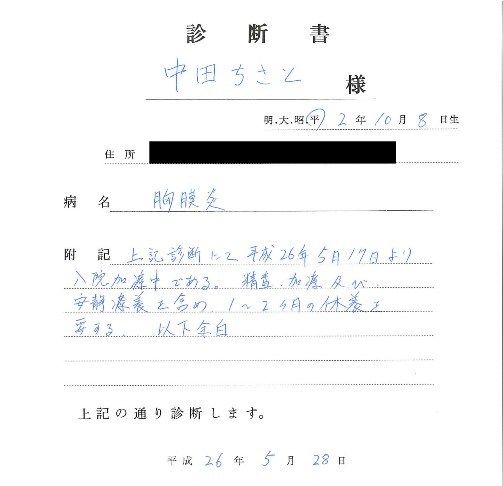 診断書
中田ちさと 様
明.大.昭.平 2年10月8日生
住所
病名 胸膜炎
附記 上記診断にて平成26年5月17日より
入院加療中である。精査、加療及び
安静療養を含め、1~2ヶ月の休養を
要する。 以下余白
上記の通り診断します。
平成26年5月28日